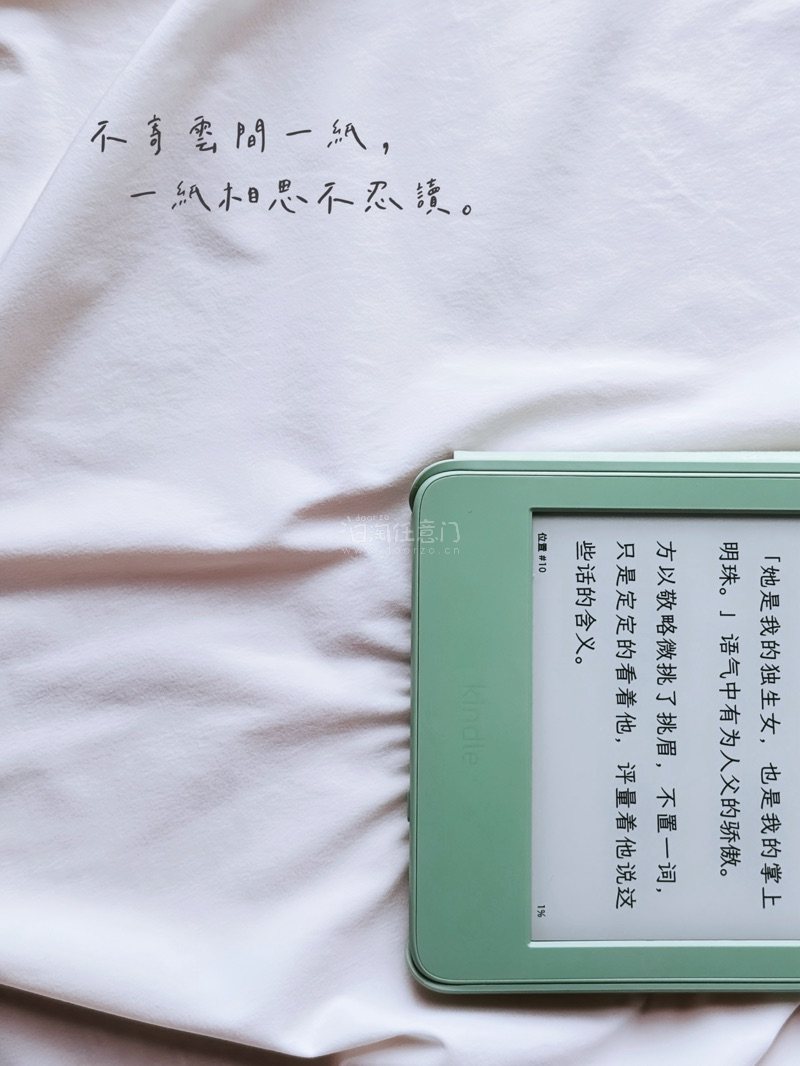 不寄雲間一紙，
一紙相思不忍讀。
doorzo
日淘任意门
www.doorzo.cn
kindle
「她是我的独生女，也是我的掌上
明珠。」语气中有为人父的骄傲。
方以敬略微挑了挑眉，不置一词，
只是定定的看着他，评量着他说这
些话的含义。
位置 #10
1%